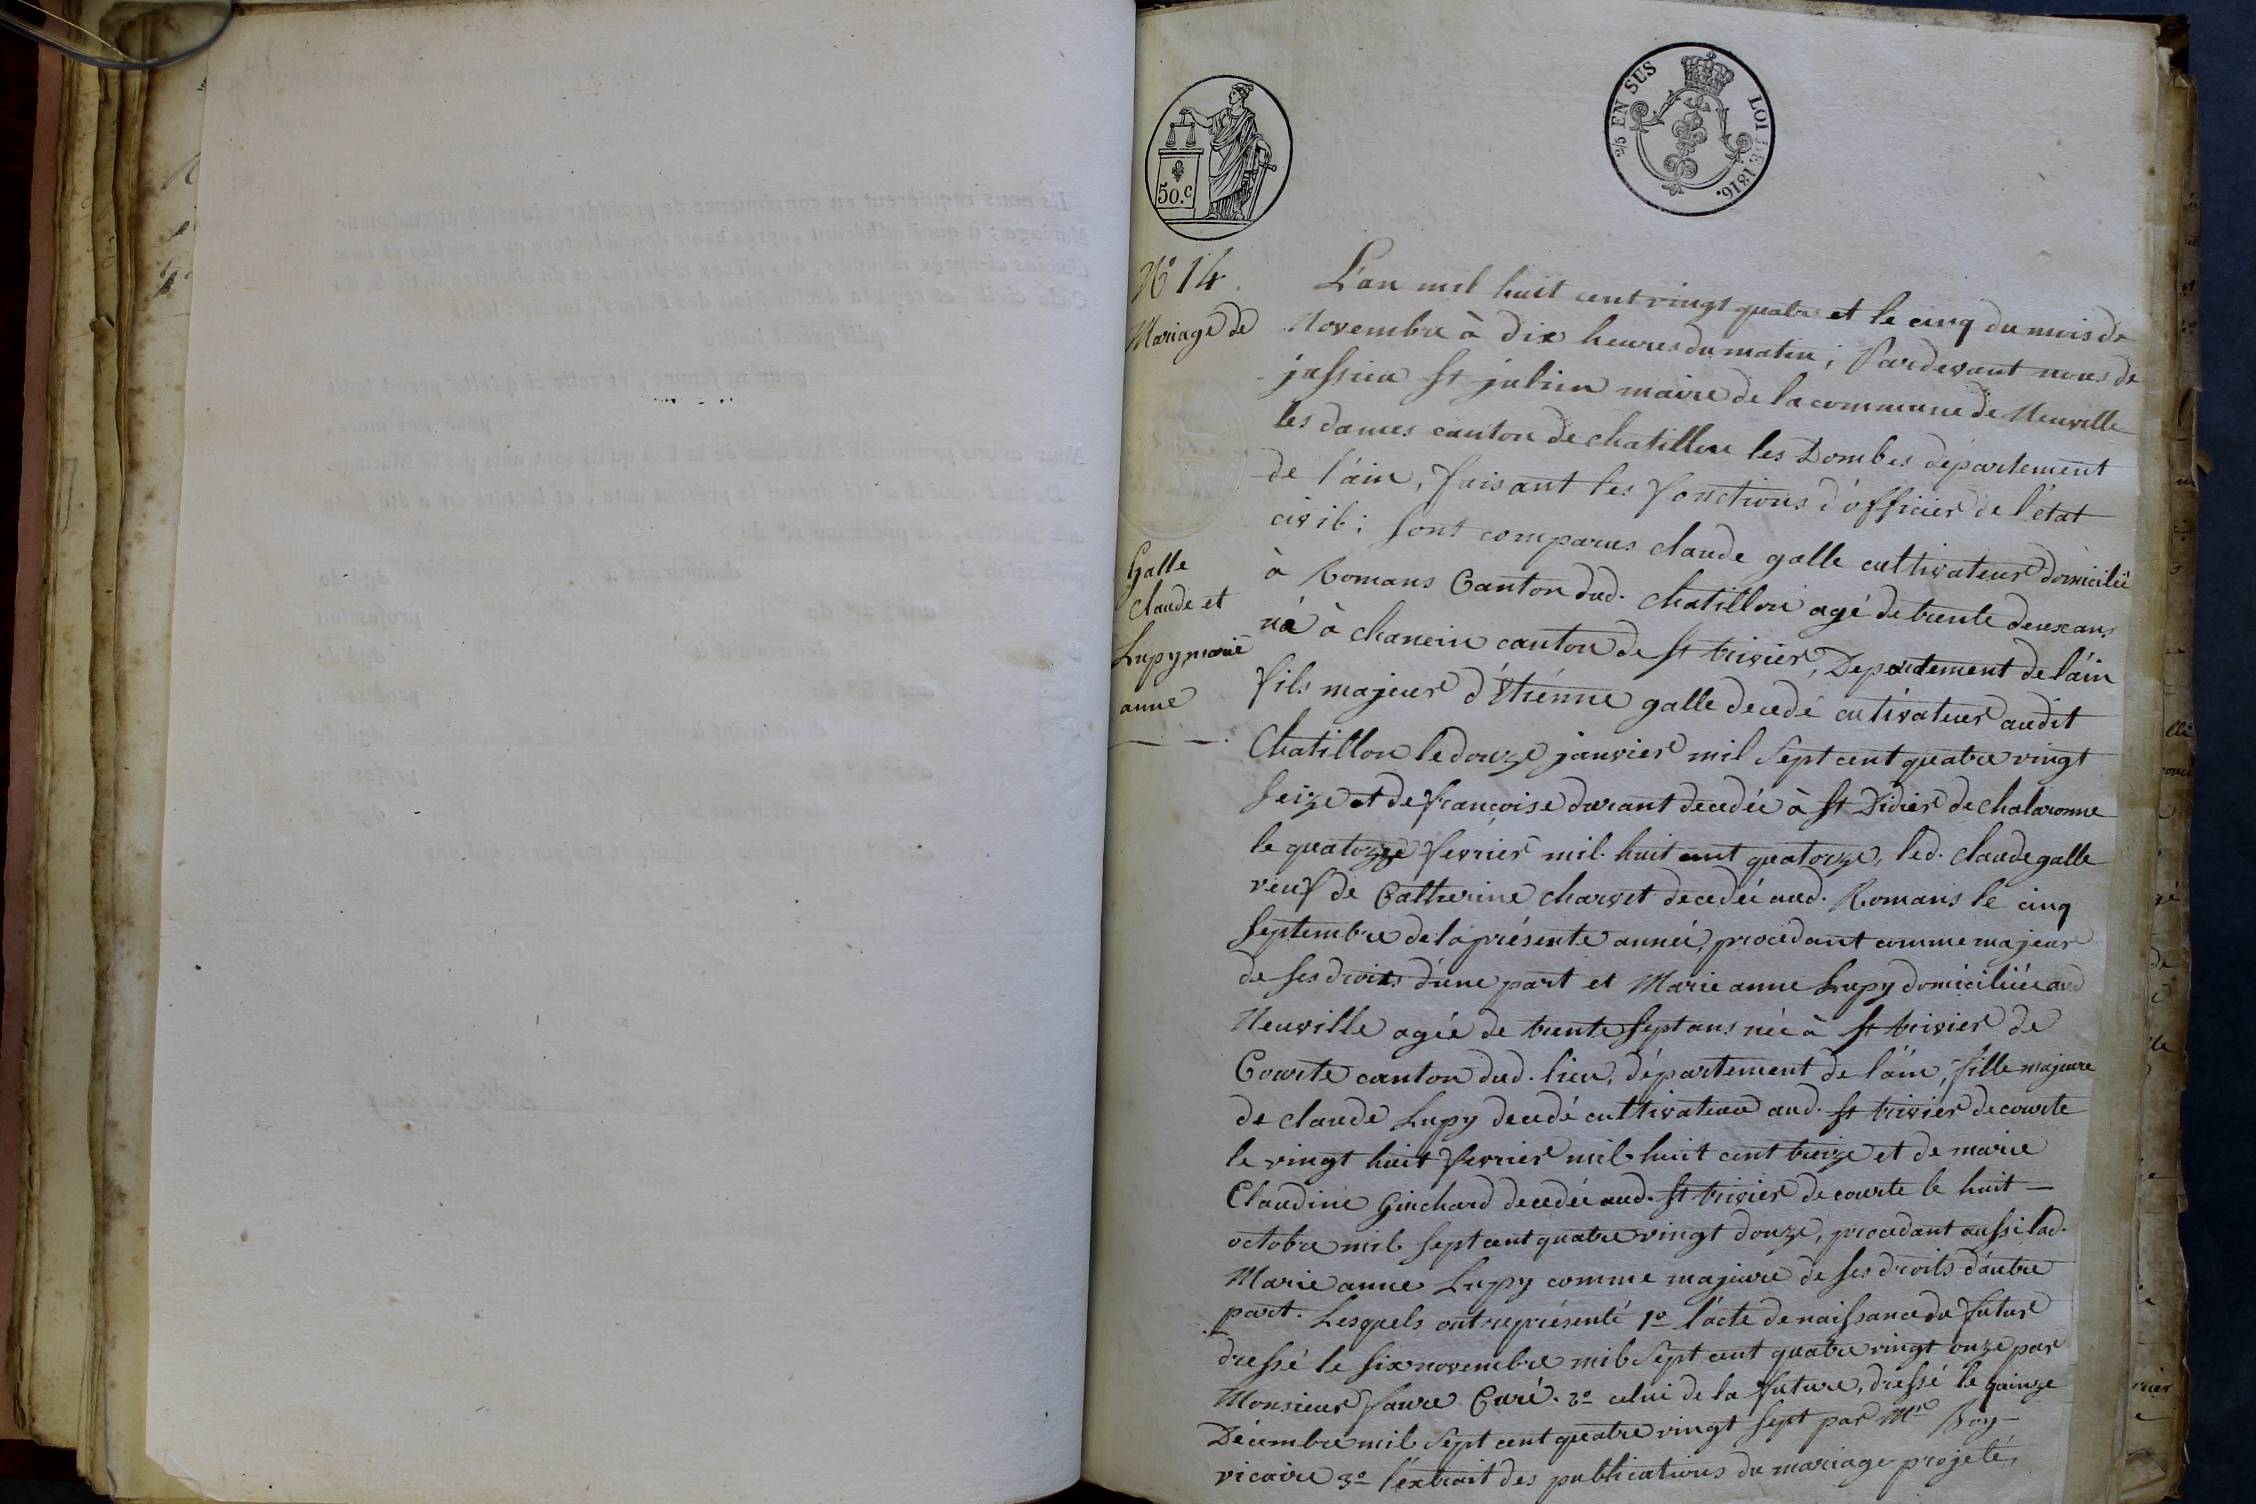 25 EN SUS LOI DE 1816.
50.c
N° 14.
Mariage de
Galle
claude et
Lupy marie
anne
L'an mil huit cent vingt quatre et le cinq du mois de
Novembre à dix heures du matin ; Pardevant nous de
jussieu St julien maire de la commune de Neuville
les dames canton de chatillon les Dombes département
de l'ain, faisant les fonctions d'officier de l'état
civil ; sont comparus claude galle cultivateur domicilié
à Romans Canton dud. chatillon agé de trente deux ans
né à chanein canton de St trivier, Departement de l'ain
fils majeur d'Etiénne galle decedé cutivateur audit
Chatillon le douze janvier mil sept cent quatre vingt
seize et de françoise durant decedée à St Didier de chalaronne
le quatorze fevrier mil huit cent quatorze, led. claude galle
veuf de Catherine charvet decedée aud. Romans le cinq
septembre de la présente année, procedant comme majeur
de ses droits d'une part et Marie anne Lupy domiciliée aud
Neuville agée de trente sept ans née à St trivier de
Courte canton dud. lieu, département de l'ain, fille majeure
de claude Lupy decedé cultivateur aud. St trivier de courte
le vingt huit fevrier mil huit cent treize et de marie
Claudine Guichard decedée aud. St trivier de courte le huit
octobre mil sept cent quatre vingt douze, procedant aussi lad.
Marie anne Lupy comme majeure de ses droits d'autre
part. Lesquels ont représenté 1° l'acte de naissance du futur
dressé le six novembre mil sept cent quatre vingt onze par
Monsieur faure Curé. 2° celui de la future, dressé le quinze
Décembre mil sept cent quatre vingt sept par Mr Boy
vicaire 3° l'extrait des publications du mariage projeté,